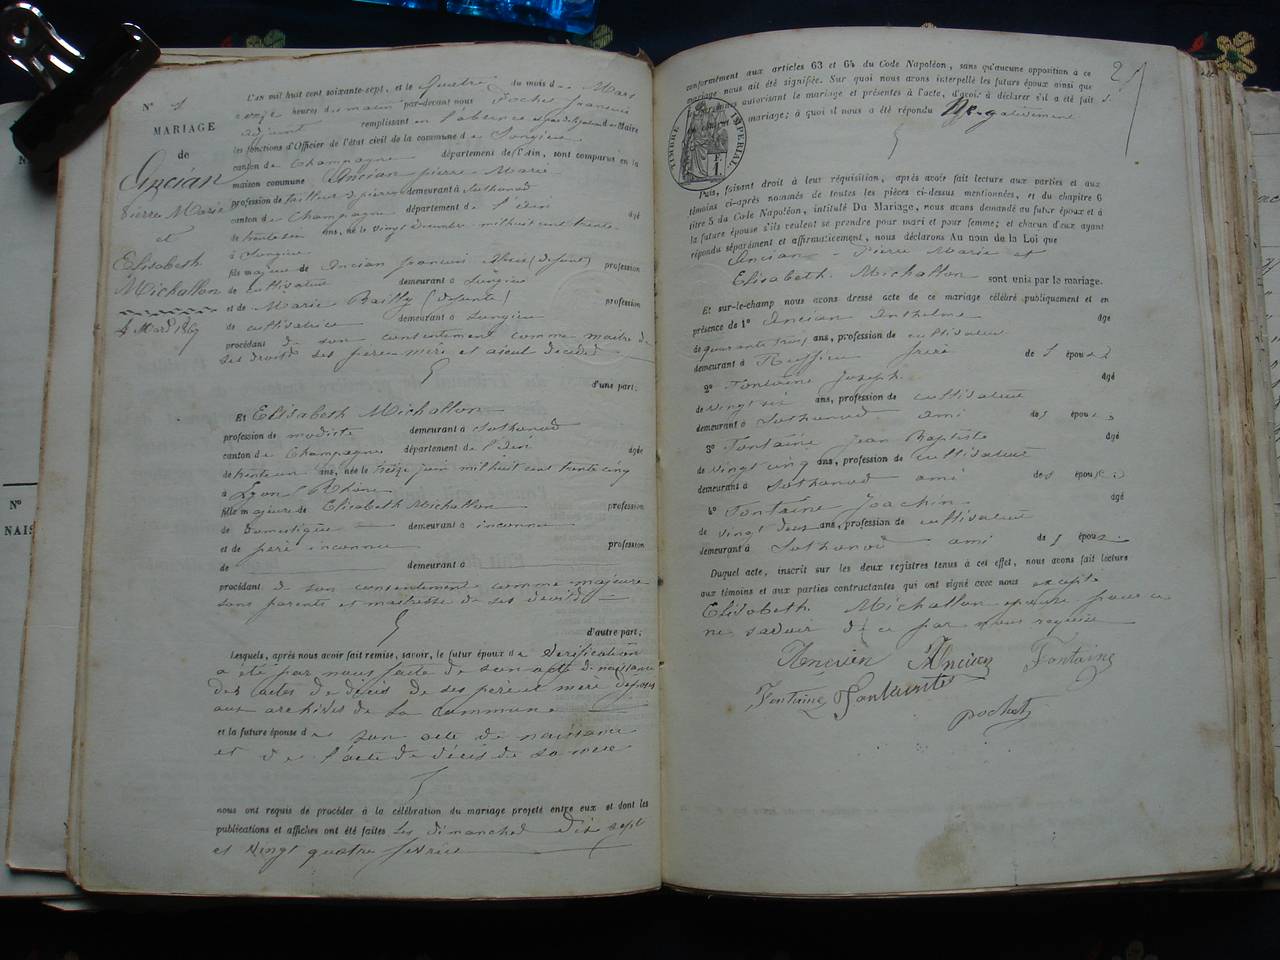 N° 1
MARIAGE
de
Ancian
Pierre Marie
et
Elisabeth
Michallon
4 Mars 1867
L'an mil huit cent soixante-sept, et le Quatre du mois de Mars
onze heures du matin par-devant nous Pochet françois
adjoint remplissant en l'absence Maire
les fonctions d'Officier de l'état civil de la commune de Songieu
canton de Champagne département de l'Ain, sont comparus en la
maison commune Ancian pierre Marie
profession de tailleur de pierre demeurant à Sothonod
canton de Champagne département de l'Ain âgé
de trente ans, né le vingt mil huit cent trente
à Songieu
fils majeur de Ancian françois (défunt) profession
de cultivateur demeurant à Songieu
et de Marie Bailly (défunte) profession
de cultivatrice demeurant à Songieu
procédant de son consentement comme maître de
ses droits ses père mère et aieul décédés
d'une part;
Et Elisabeth Michallon
profession de modiste demeurant à Sothonod
canton de Champagne département de l'Ain âgée
de trente un ans, née le treize juin mil huit cent trente cinq
à Lyon Rhône
fille majeure de Elisabeth Michallon profession
de domestique demeurant à inconnu
et de père inconnu profession
de demeurant à
procédant de son consentement comme majeure
sans parents et maitresse de ses droits
d'autre part;
Lesquels, après nous avoir fait remise, savoir, le futur époux de vérification
a été par nous faite de son acte de naissance
des actes de décès de ses père et mère déposés
aux archives de la commune
et la future épouse de son acte de naissance
et de l'acte de décès de sa mère
nous ont requis de procéder à la célébration du mariage projeté entre eux et dont les
publications et affiches ont été faites les dimanches dix sept
et vingt quatre février
25
conformément aux articles 63 et 64 du Code Napoléon, sans qu'aucune opposition à ce
mariage nous ait été signifiée. Sur quoi nous avons interpellé les futurs époux ainsi que
autorisant le mariage et présentes à l'acte, d'avoir à déclarer s'il a été fait
mariage; à quoi il nous a été répondu Négativement
TIMBRE IMPERIAL
F. 1.
Puis, faisant droit à leur réquisition, après avoir fait lecture aux parties et aux
témoins ci-après nommés de toutes les pièces ci-dessus mentionnées, et du chapitre 6
titre 5 du Code Napoléon, intitulé Du Mariage, nous avons demandé au futur époux et à
la future épouse s'ils veulent se prendre pour mari et pour femme; et chacun d'eux ayant
répondu séparément et affirmativement, nous déclarons Au nom de la Loi que
Ancian Pierre Marie et
Elisabeth Michallon sont unis par le mariage.
Et sur-le-champ nous avons dressé acte de ce mariage célébré publiquement et en
présence de 1° Ancian Anthelme âgé
de quarante trois ans, profession de cultivateur
demeurant à Ruffieu frère de l'époux
2° Fontaine Joseph âgé
de vingt six ans, profession de cultivateur
demeurant à Sothonod ami des époux
3° Fontaine Jean Baptiste âgé
de vingt cinq ans, profession de cultivateur
demeurant à Sothonod ami des époux
4° Fontaine Joachin âgé
de vingt deux ans, profession de cultivateur
demeurant à Sothonod ami des époux
Duquel acte, inscrit sur les deux registres tenus à cet effet, nous avons fait lecture
aux témoins et aux parties contractantes qui ont signé avec nous excepté
Elisabeth Michallon épouse pour
ne savoir de ce par nous requise
Ancian Ancian Fontaine
Fontaine Fontaine
Pochet
N°
NAIS